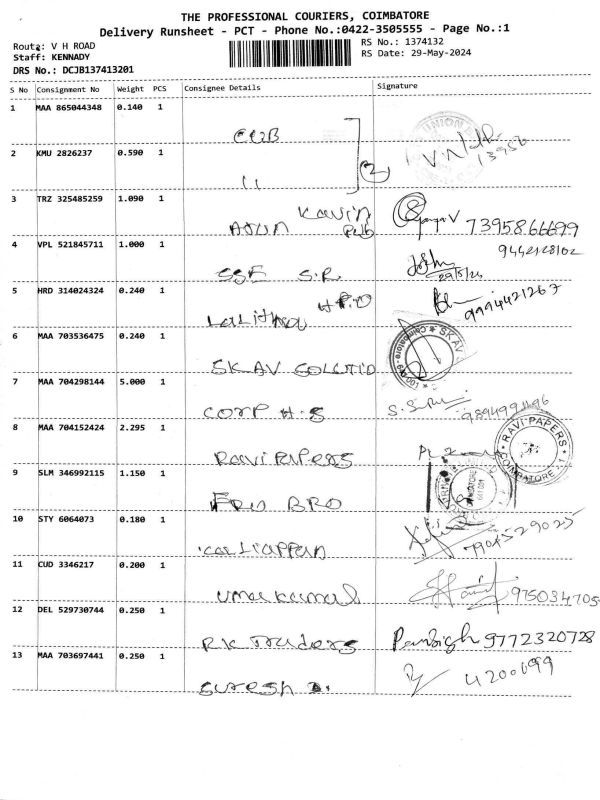 THE PROFESSIONAL COURIERS, COIMBATORE
Delivery Runsheet - PCT - Phone No.:0422-3505555 - Page No.:1
Route: V H ROAD
RS No.: 1374132
Staff: KENNADY
RS Date: 29-May-2024
DRS No.: DCJB137413201
S No Consignment No Weight PCS Consignee Details Signature
1 MAA 865044348 0.140 1
CUB
2 KMU 2826237 0.590 1
11
2
3 TRZ 325485259 1.090 1
Arun Kavin Pub 7395866699
4 VPL 521845711 1.000 1 9442128102
SSF S.R. 29/5/24
5 HRD 314024324 0.240 1 9994421267
Lalitha
6 MAA 703536475 0.240 1
SKAV SOLUTIO
SKAV
7 MAA 704298144 5.000 1
CORP H.S
8 MAA 704152424 2.295 1
RAVI PAPERS
RAVI PAPERS
COIMBATORE
9 SLM 346992115 1.150 1
BRO
10 STY 6064073 0.180 1
Kaliappan
11 CUD 3346217 0.200 1
Uma Kamal 975034705
12 DEL 529730744 0.250 1
RK Traders 9772320728
13 MAA 703697441 0.250 1
Suresh D. 4200699